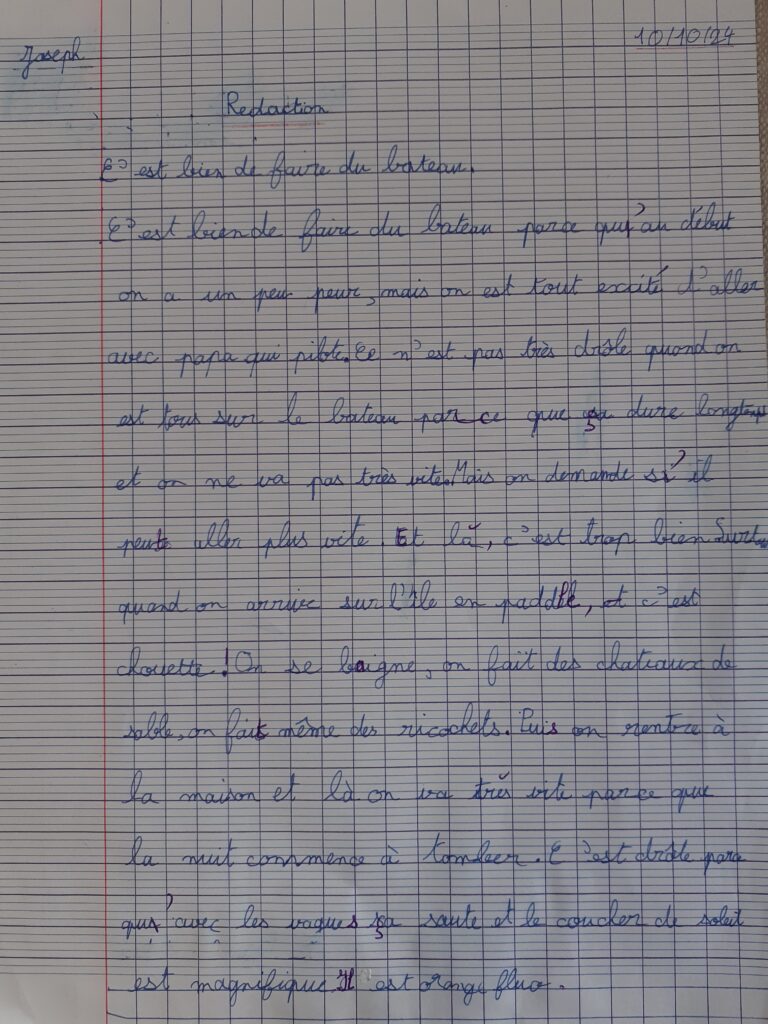 Joseph
10/10/24
Redaction
C'est bien de faire du bateau.
C'est bien de faire du bateau parce qu'au début
on a un peu peur, mais on est tout excité d'aller
avec papa qui pilote. Ce n'est pas très drôle quand on
est tous sur le bateau parce que ça dure longtemps
et on ne va pas très vite. Mais on demande s'il
peut aller plus vite. Et là, c'est trop bien Surtout
quand on arrive sur l'île en paddle, et c'est
chouette ! On se baigne, on fait des chateaux de
sable, on fait même des ricochets. Puis on rentre à
la maison et là on va très vite parce que
la nuit commence à tomber. C'est drôle parce
qu'avec les vagues ça saute et le coucher de soleil
est magnifique Il est orange fluo.